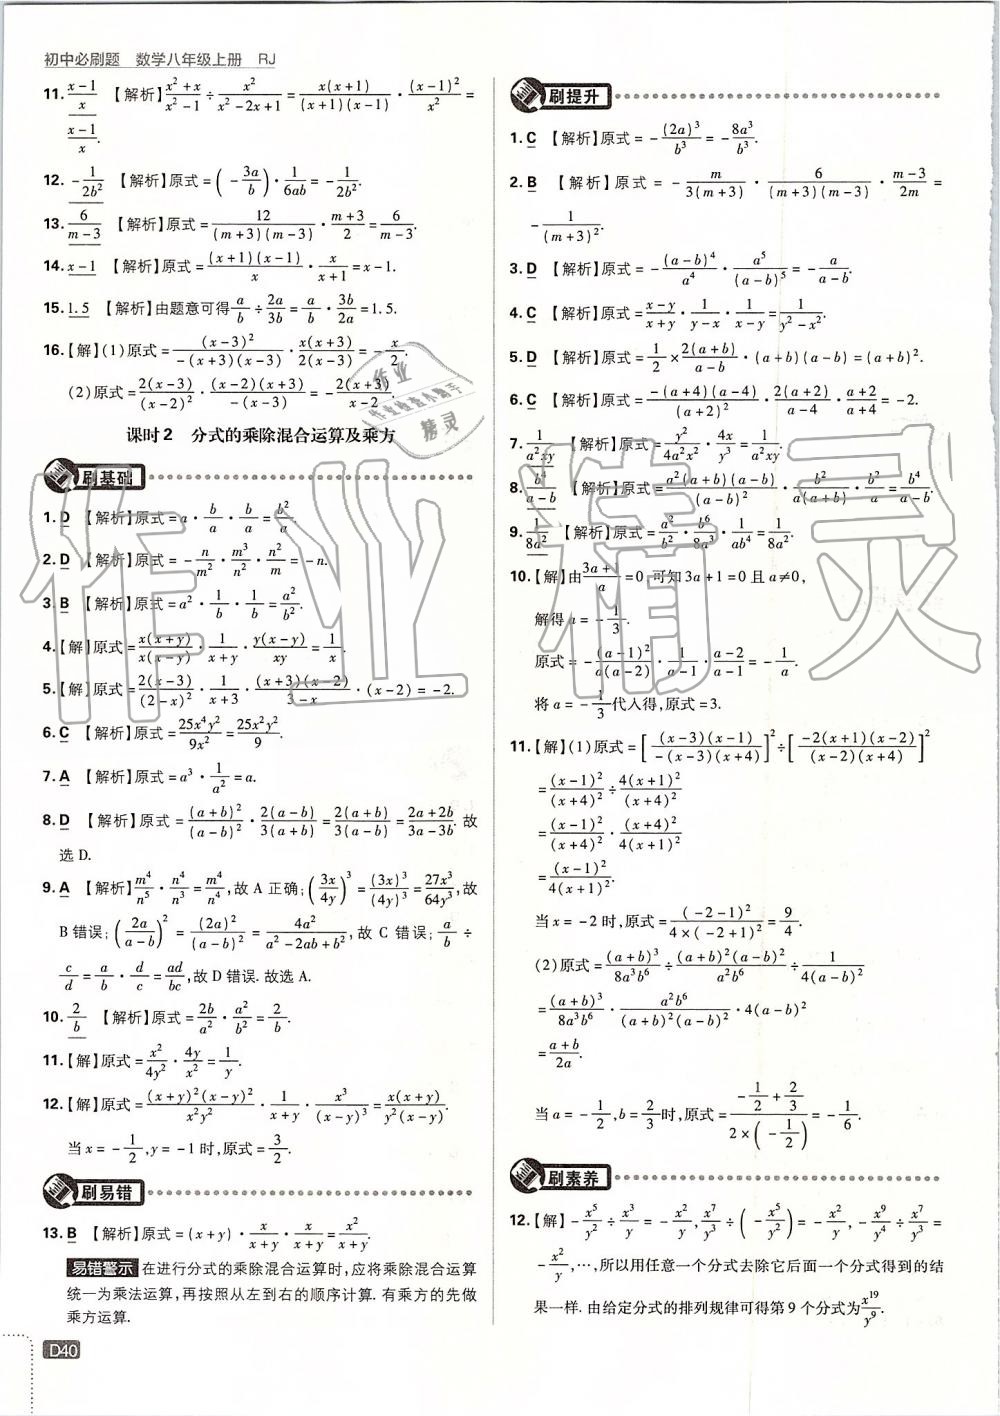 初中必刷题 数学八年级上册 RJ
11. (x-1)/x 【解析】(x²+x)/(x²-1)÷x²/(x²-2x+1)=x(x+1)/((x+1)(x-1))·(x-1)²/x²=
(x-1)/x.
12. -1/(2b²) 【解析】原式=(-3a/b)·1/(6ab)=-1/(2b²).
13. 6/(m-3) 【解析】原式=12/((m+3)(m-3))·(m+3)/2=6/(m-3).
14. x-1 【解析】原式=(x+1)(x-1)/x·x/(x+1)=x-1.
15. 1.5 【解析】由题意可得a/b÷2a/3b=a/b·3b/2a=1.5.
16.【解】(1)原式=(x-3)²/(-(x+3)(x-3))·x(x+3)/(2(x-3))=-x/2.
(2)原式=2(x-3)/(x-2)²·(-(x-2)(x+3))/(x-3)=-2(x+3)/(x-2).
课时2 分式的乘除混合运算及乘方
刷基础
1. D 【解析】原式=a·b/a·b/a=b²/a.
2. D 【解析】原式=-n/m²·m³/n²·n²/m=-n.
3. B 【解析】原式=a²·1/b·1/b=a²/b².
4.【解】原式=x(x+y)/(x(x-y))·1/(x+y)·y(x-y)/(xy)=1/x.
5.【解】原式=2(x-3)/(2-x)²·1/(x+3)·(x+3)(x-2)/(3-x)·(x-2)=-2.
6. C 【解析】原式=25x⁴y²/(9x²)=25x²y²/9.
7. A 【解析】原式=a³·1/a²=a.
8. D 【解析】原式=(a+b)²/(a-b)²·2(a-b)/(3(a+b))=2(a+b)/(3(a-b))=(2a+2b)/(3a-3b).故
选 D.
9. A 【解析】m⁴/n⁵·n⁴/m³=m/n,故 A 正确;(3x/4y)³=(3x)³/(4y)³=27x³/(64y³),故
B 错误;(2a/(a-b))²=(2a)²/(a-b)²=4a²/(a²-2ab+b²),故 C 错误;a/b÷
c/d=a/b·d/c=ad/bc,故 D 错误.故选 A.
10. 2/b 【解析】原式=2b/a²·a²/b²=2/b.
11.【解】原式=x²/(4y²)·4y/x²=1/y.
12.【解】原式=(x+y)²(x-y)²/(x²y²)·1/(x+y)·x³/(x-y)³=x(x+y)/(y²(x-y)).
当 x=-1/2,y=-1时,原式=3/2.
刷易错
13. B 【解析】原式=(x+y)·x/(x+y)·x/(x+y)=x²/(x+y).
易错警示 在进行分式的乘除混合运算时,应将乘除混合运算
统一为乘法运算,再按照从左到右的顺序计算.有乘方的先做
乘方运算.
D40
刷提升
1. C 【解析】原式=-(2a)³/b³=-8a³/b³.
2. B 【解析】原式=-m/(3(m+3))·6/((m+3)(m-3))·(m-3)/2m=
-1/(m+3)².
3. D 【解析】原式=-(a-b)⁴/a⁴·a⁵/(a-b)⁵=-a/(a-b).
4. C 【解析】原式=(x-y)/(x+y)·1/(y-x)·1/(x-y)=1/(y²-x²).
5. D 【解析】原式=1/2×2(a+b)/(a-b)·(a+b)(a-b)=(a+b)².
6. C 【解析】原式=-(a+4)(a-4)/(a+2)²·2(a+2)/(a-4)·(a+2)/(a+4)=-2.
7. 1/(a²xy) 【解析】原式=y²/(4a²x²)·4x/y³=1/(a²xy).
8. b⁴/(a-b) 【解析】原式=a²(a+b)(a-b)/(a-b)²·b²/(a(a+b))·b²/a=b⁴/(a-b).
9. 1/(8a²) 【解析】原式=a²/b²·b⁶/(8a³)·1/(ab⁴)=1/(8a²).
10.【解】由(3a+1)/a=0,可知3a+1=0且a≠0,
解得 a=-1/3.
原式=-(a-1)²/(a(a-2))·1/(a-1)·(a-2)/(a-1)=-1/a.
将 a=-1/3代入得,原式=3.
11.【解】(1)原式=[(x-3)(x-1)/(-(x-3)(x+4))]²÷[-2(x+1)(x-2)/((x-2)(x+4))]²
=(x-1)²/(x+4)²÷4(x+1)²/(x+4)²
=(x-1)²/(x+4)²·(x+4)²/(4(x+1)²)
=(x-1)²/(4(x+1)²).
当 x=-2时,原式=(-2-1)²/(4×(-2+1)²)=9/4.
(2)原式=(a+b)³/(8a³b⁶)÷(a+b)²(a-b)²/(a²b⁶)÷1/(4(a-b)²)
=(a+b)³/(8a³b⁶)·a²b⁶/((a+b)²(a-b)²)·4(a-b)²
=(a+b)/2a.
当 a=-1/2,b=2/3时,原式=(-1/2+2/3)/(2×(-1/2))=-1/6.
刷素养
12.【解】-x⁵/y²÷x³/y=-x²/y,x⁷/y³÷(-x⁵/y²)=-x²/y,-x⁹/y⁴÷x⁷/y³=
-x²/y,…,所以用任意一个分式去除它后面一个分式得到的结
果一样.由给定分式的排列规律可得第9个分式为x¹⁹/y⁹.
作业精灵
作业
精灵